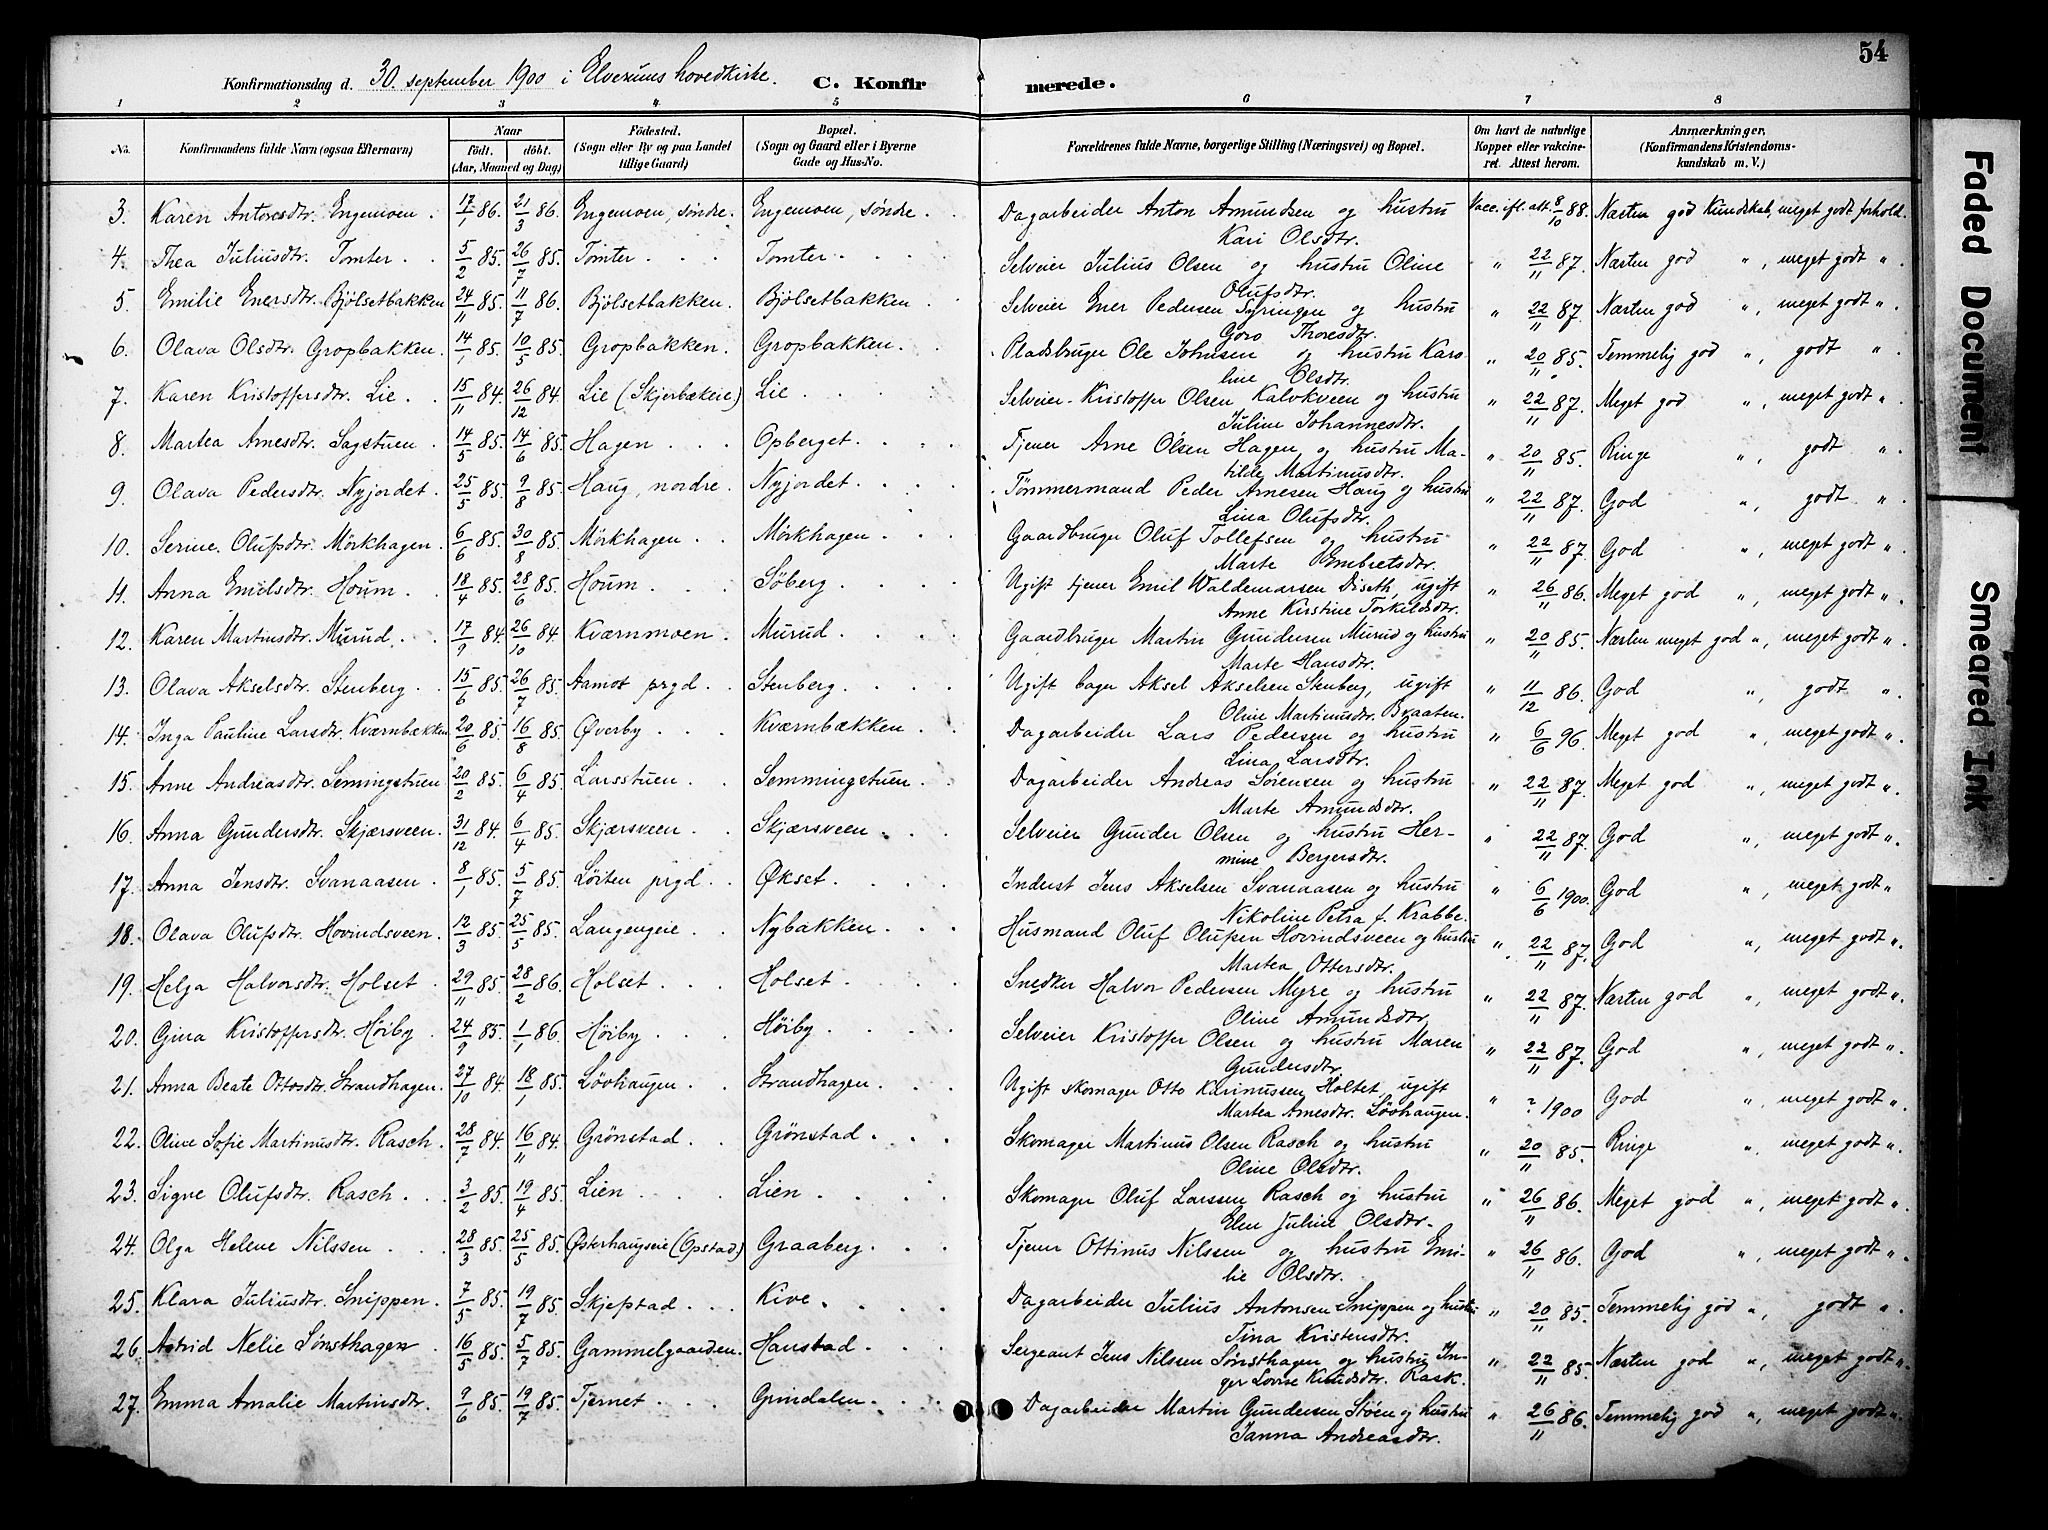 54
Konfirmationsdag d. 30. september 1900 i Elverums hovedkirke. C. Konfirmerede.
1 2 3 4 5 6 7 8
No. Konfirmandens fulde Navn (ogsaa Efternavn) Naar født. døbt. (Aar, Maaned og Dag) Fødested. (Sogn eller By og paa Landet tillige Gaard) Bopæl. (Sogn og Gaard eller i Byerne Gade og Hus-No. Forældrenes fulde Navne, borgerlige Stilling (Næringsvei) og Bopæl. Om havt de naturlige Kopper eller vakcineret. Attest herom. Anmærkninger, (Konfirmandens Kristendomskundskab m. V.)
3. Karen Antonsdtr. Engemoen. 17/1 86. 21/3 86. Engemoen, søndre. Engemoen, søndre. Dagarbeider Anton Amundsen og hustru Vacc. ifl. att. 8/10 88. Næsten god Kundskab, meget godt forhold.
Kari Olsdtr.
4. Thea Juliusdtr. Tomter. 5/2 85. 26/7 85. Tomter. Tomter. Selveier Julius Olsen og hustru Oline " 22/11 87. Næsten god ", meget godt ".
Olufsdtr.
5. Emilie Enersdtr. Bjølsetbakken 24/11 85. 11/7 86. Bjølsetbakken. Bjølsetbakken. Selveier Ener Pedersen Syringen og hustru " 22/11 87. Næsten god ", meget godt ".
Goro Thoresdtr.
6. Olava Olsdtr. Gropbakken. 14/1 85. 10/5 85. Gropbakken. Gropbakken. Pladsbruger Ole Johnsen og hustru Karo- " 20/11 85. Temmelig god ", godt "
line Olsdtr.
7. Karen Kristoffersdtr. Lie. 15/11 84. 26/12 84. Lie (Skjerbækeie) Lie. Selveier Kristoffer Olsen Kalvkveen og hustru " 22/11 87. Meget god ", meget godt ".
Juline Johannesdtr.
8. Martea Arnesdtr. Sagstuen. 14/5 85. 14/6 85. Hagen. Opberget. Tjener Arne Olsen Hagen og hustru Ma- " 20/11 85. Ringe ", godt ".
tilde Martinusdtr.
9. Olava Pedersdtr. Nyjordet. 25/5 85. 9/8 85. Haug, nordre. Nyjordet. Tømmermand Peder Arnesen Haug og hustru " 22/11 87. God ", godt ".
Lina Olufsdtr.
10. Serine Olufsdtr. Mørkhagen. 6/6 85. 30/8 85. Mørkhagen. Mørkhagen. Gaardbruger Oluf Tollefsen og hustru " 22/11 87. God ", meget godt ".
Marte Embretsdtr.
11. Anna Emilsdtr. Houm. 18/4 85. 28/6 85. Houm. Søberg. Ugift tjener Emil Waldemarsen Diseth, ugift " 26/11 86. Meget god ", meget godt ".
Anne Kirstine Torkildsdtr.
12. Karen Martinsdtr. Murud. 17/9 84. 26/10 84. Kværnmoen. Murud. Gaardbruger Martin Gundersen Murud og hustru " 20/11 85. Næsten meget god ", meget godt ".
Marte Hansdtr.
13. Olava Akselsdtr. Stenberg. 15/6 85. 26/7 85. Aamot prgd. Stenberg. Ugift bager Aksel Akselsen Stenberg, ugift " 11/12 86. God ", godt ".
Oline Martinusdtr. Braaten.
14. Inga Pauline Larsdtr. Kværnbækken 20/6 85. 16/8 85. Øverby. Kværnbækken. Dagarbeider Lars Pedersen og hustru " 6/6 96. Meget god ", meget godt ".
Lina Larsdtr.
15. Arne Andreasdtr. Semmingstuen 20/2 85. 6/4 85. Larsstuen. Semmingstuen. Dagarbeider Andreas Sørensen og hustru " 22/11 87. Meget god ", meget godt ".
Marte Amundsdtr.
16. Anna Gundersdtr. Skjærsveen. 31/12 84. 6/4 85. Skjærsveen. Skjærsveen. Selveier Gunder Olsen og hustru Her- " 22/11 87. God ", meget godt ".
mine Bergersdtr.
17. Anna Jensdtr. Svanaasen. 8/1 85. 5/7 85. Løiten prgd. Økset. Inderst Jens Akselsen Svanaasen og hustru " 6/6 1900. God ", meget godt "
Nikoline Petra f. Krabbe.
18. Olava Olufsdtr. Hovindsveen. 12/3 85. 25/5 85. Langengeie. Nybakken. Husmand Oluf Olufsen Hovindsveen og hustru " 22/11 87. God ", meget godt ".
Martea Ottersdtr.
19. Helga Halvorsdtr. Holset. 29/11 85. 28/2 86. Holset. Holset. Snedker Halvor Pedersen Myre og hustru " 22/11 87. Næsten god ", meget godt ".
Oline Amundsdtr.
20. Gina Kristoffersdtr. Høiby. 24/9 85. 1/1 86. Høiby. Høiby. Selveier Kristoffer Olsen og hustru Maren " 22/11 87. God ", meget godt ".
Gundersdtr.
21. Anna Beate Ottosdtr. Strandhagen. 27/10 84. 18/1 85. Løvhaugen. Strandhagen. Ugift skomager Otto Karinussen Holtet, ugift " ? 1900 God ", meget godt ".
Martea Arnesdtr. Løvhaugen.
22. Oline Sofie Martinusdtr. Rasch. 28/7 84. 16/11 84. Grønstad. Grønstad. Skomager Martinus Olsen Rasch og hustru " 20/11 85. Ringe ", meget godt ".
Oline Olsdtr.
23. Signe Olufsdtr. Rasch. 3/2 85. 19/4 85. Lien. Lien. Skomager Oluf Larssen Rasch og hustru " 26/11 86. Meget god ", meget godt ".
Elen Juline Olsdtr.
24. Olga Helene Nilssen. 28/3 85. 25/5 85. Østerhaugseie (Opstad) Graaberg. Tjener Ottinus Nilssen og hustru Emi- " 26/11 86. God ", meget godt ".
lie Olsdtr.
25. Klara Juliusdtr. Snippen. 7/5 85. 19/7 85. Skjefstad. Kive. Dagarbeider Julius Antonsen Snippen og hustru " 20/11 85. Temmelig god ", godt ".
Tina Kristensdtr.
26. Astrid Nelie Sønsthagen. 16/5 85. 5/7 85. Gammelgaarden. Hanstad. Sergeant Jens Nilssen Sønsthagen og hustru In- " 22/11 85. Næsten god ", meget godt ".
ger Lovise Knudsdtr. Rask.
27. Emma Amalie Martinsdtr. 9/6 85. 19/7 85. Tjernet. Grindalen. Dagarbeider Martin Gundersen Støen og hustru " 26/11 86. Temmelig god ", meget godt ".
Janna Andreasdtr.
Faded Document
Smeared Ink